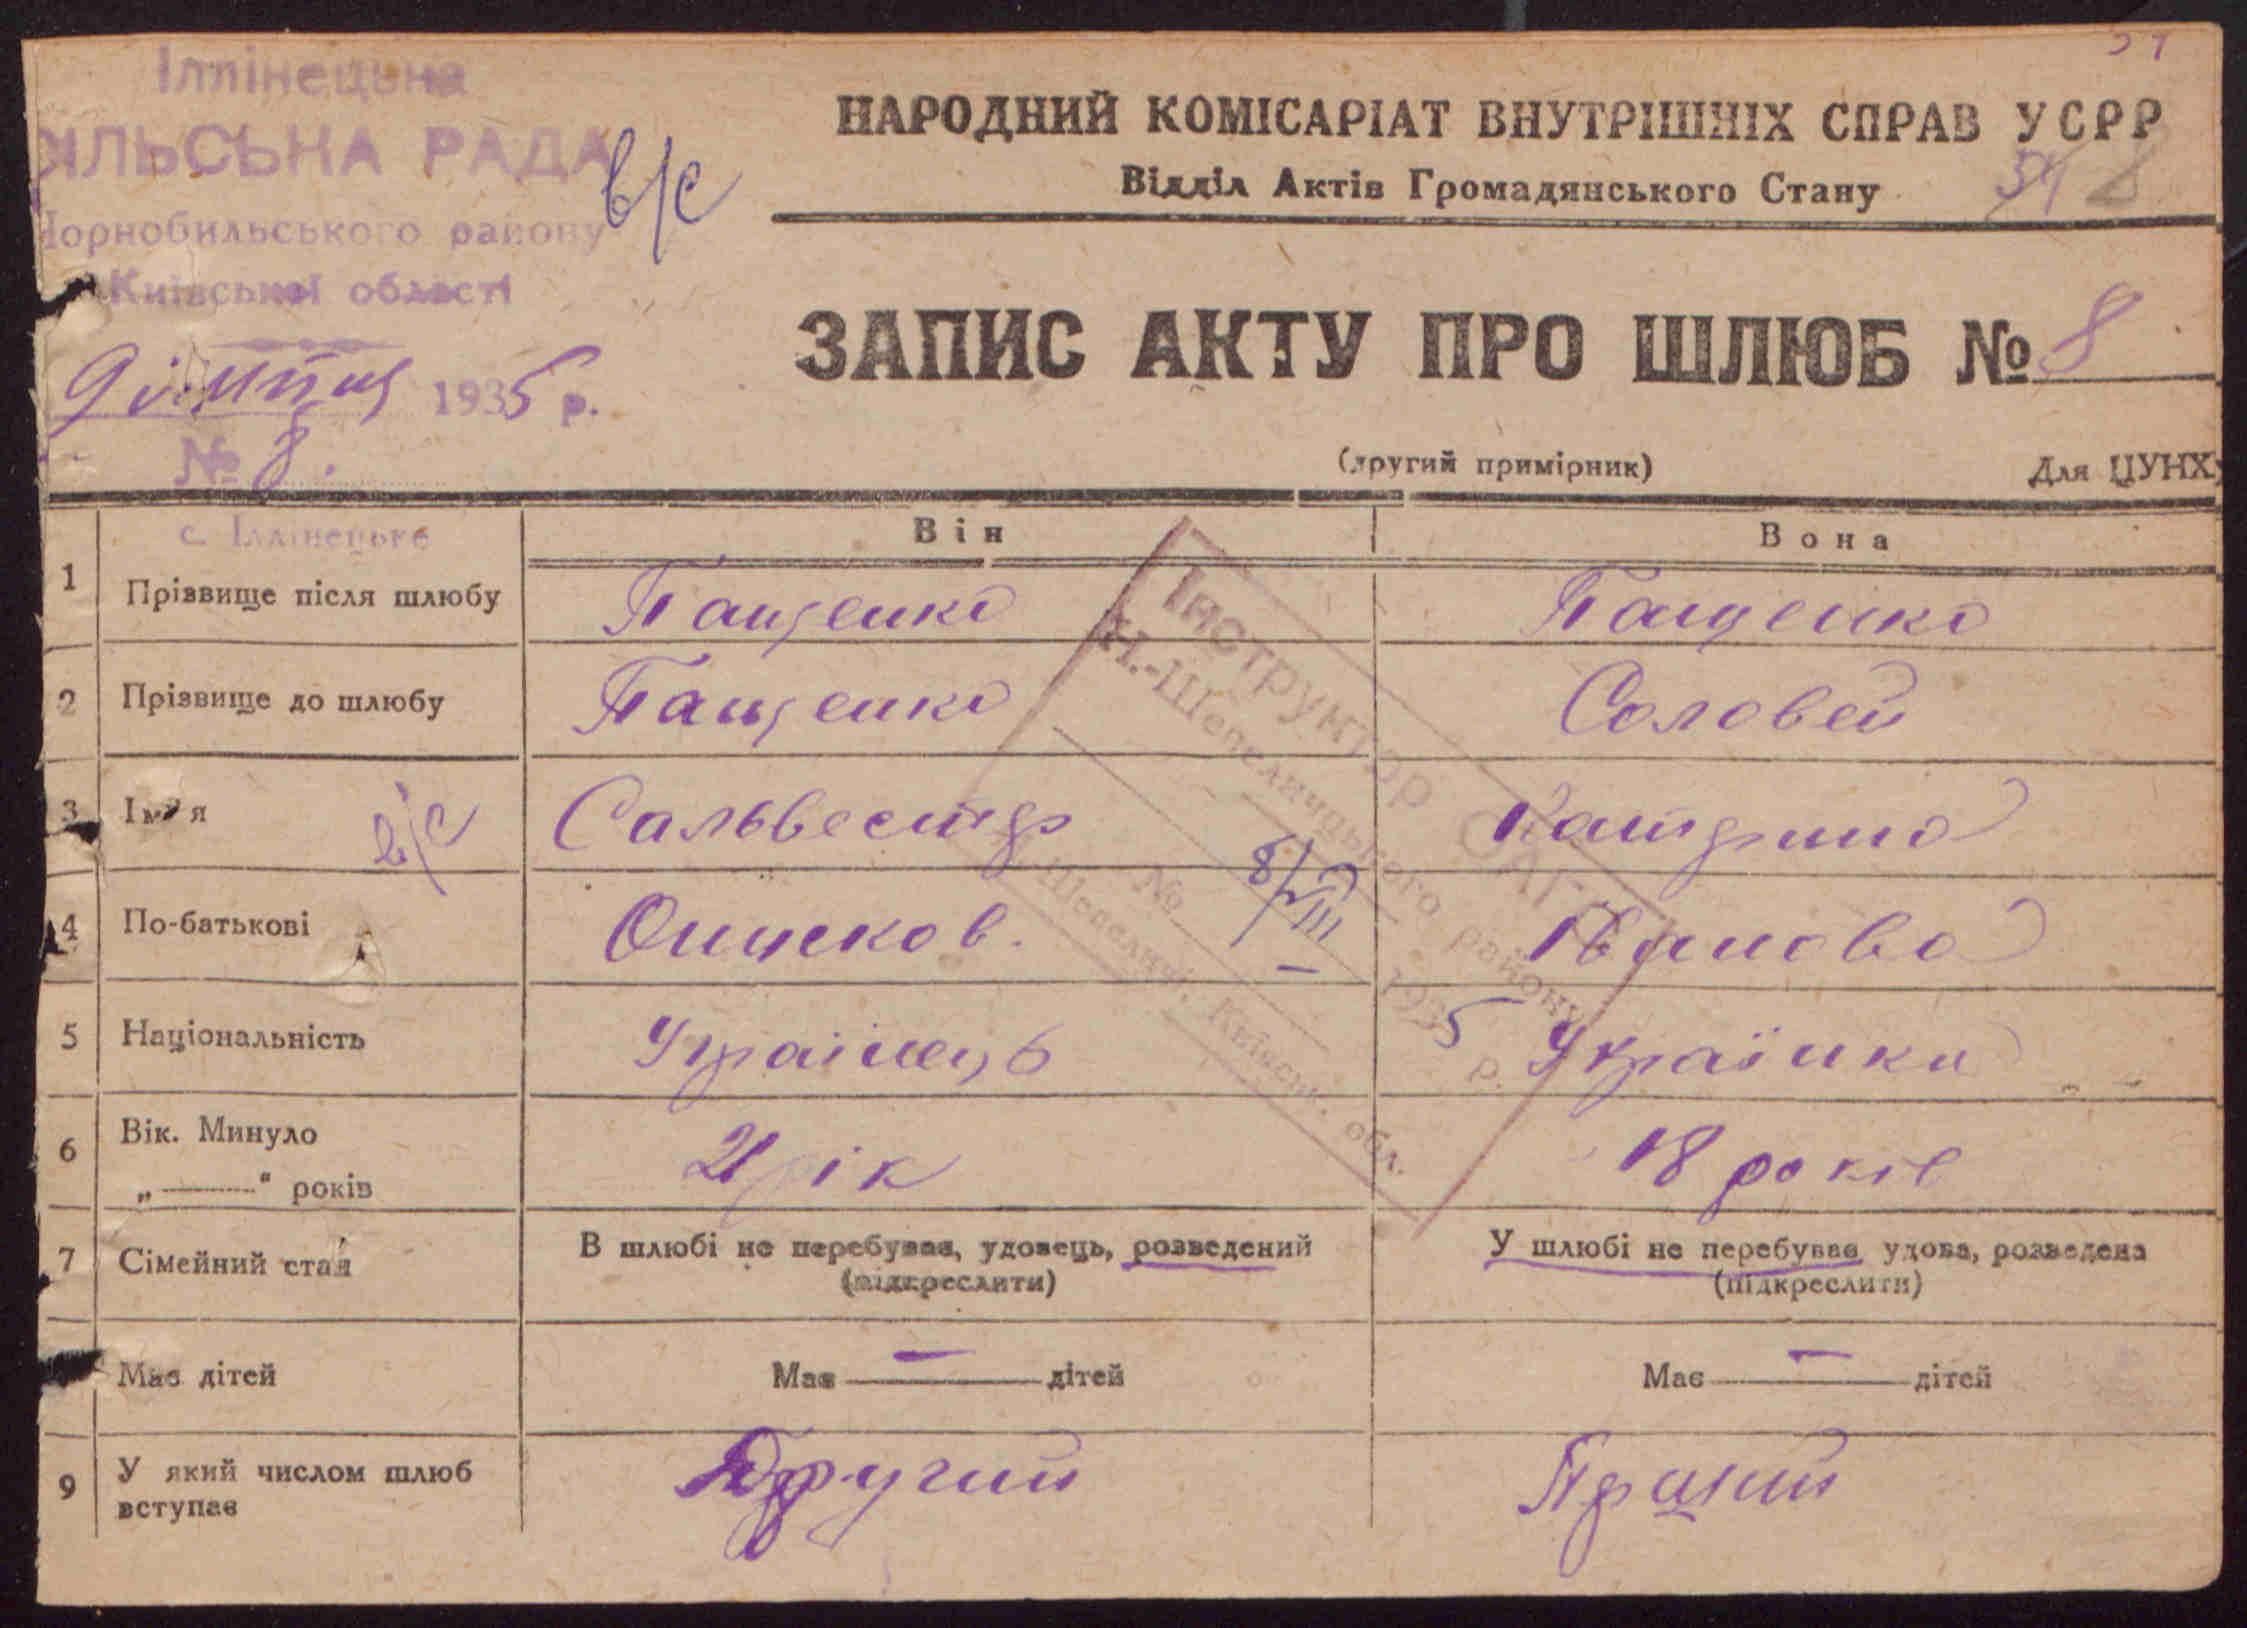 Іллінецька
СІЛЬСЬКА РАДА
Чорнобильського району
Київської області
9 липня 1935 р.
№ 8.
с. Іллінецьке
в/с
НАРОДНИЙ КОМІСАРІАТ ВНУТРІШНІХ СПРАВ УСРР
Відділ Актів Громадянського Стану
54 8
ЗАПИС АКТУ ПРО ШЛЮБ № 8
(другий примірник) Для ЦУНХУ
Він Вона
1 Прізвище після шлюбу Пащенко Пащенко
2 Прізвище до шлюбу Пащенко Соловей
3 Ім'я в/с Сальвестр Катрина
4 По-батькові Онисков. Іванова
5 Національність Українець Українка
6 Вік. Минуло
„——“ років 21 рік 18 років
7 Сімейний стан В шлюбі не перебував, удовець, розведений У шлюбі не перебував удова, розведена
(підкреслити) (підкреслити)
Має дітей Має — дітей Має — дітей
9 У який числом шлюб
вступає Другий Прший
Інструктор ЗАГС
Н.-Шепелицького району
8/VIII 1935 р.
№
Шепеличі, Київськ. обл.